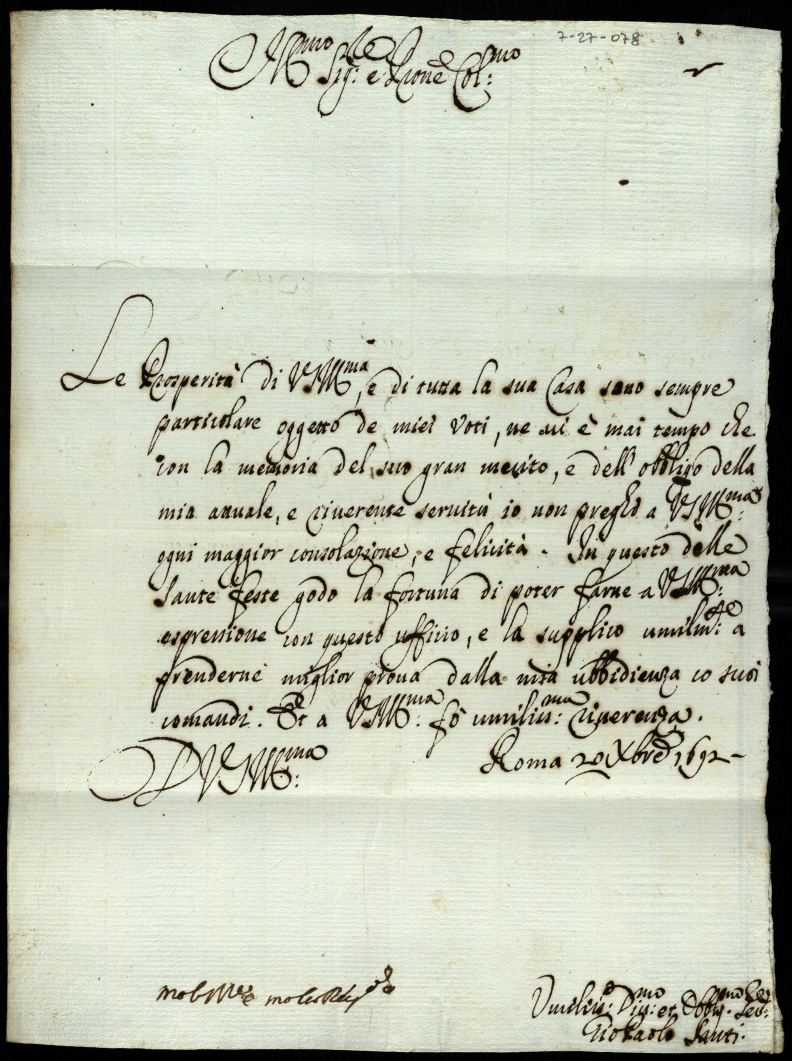 7-27-078
Ill.mo Sig.re e Prone Col.mo
Le Prosperità di V.S.Ill.ma, e di tutta la sua Casa sono sempre
particolare oggetto de miei voti, ne ui è mai tempo che
con la memoria del suo gran merito, e dell'obbligo della
mia attuale, e riuerente seruitù io non preghi a V.S.Ill.ma:
ogni maggior consolazione, e felicità. In questo delle
Sante feste godo la fortuna di poter farne a V.S.Ill.ma:
espressione con questo uffitio, e la supplico umilm.te: a
prenderne miglior proua dalla mia ubbidienza co suoi
comandi. Et a V.S.Ill.ma: fò umiliss:ma riuerenza.
D V.S.Ill.ma: Roma 20 Xbre 1692
Umiliss:o Diu:mo et Obblig.mo Ser:re
Gio Paolo Santi.